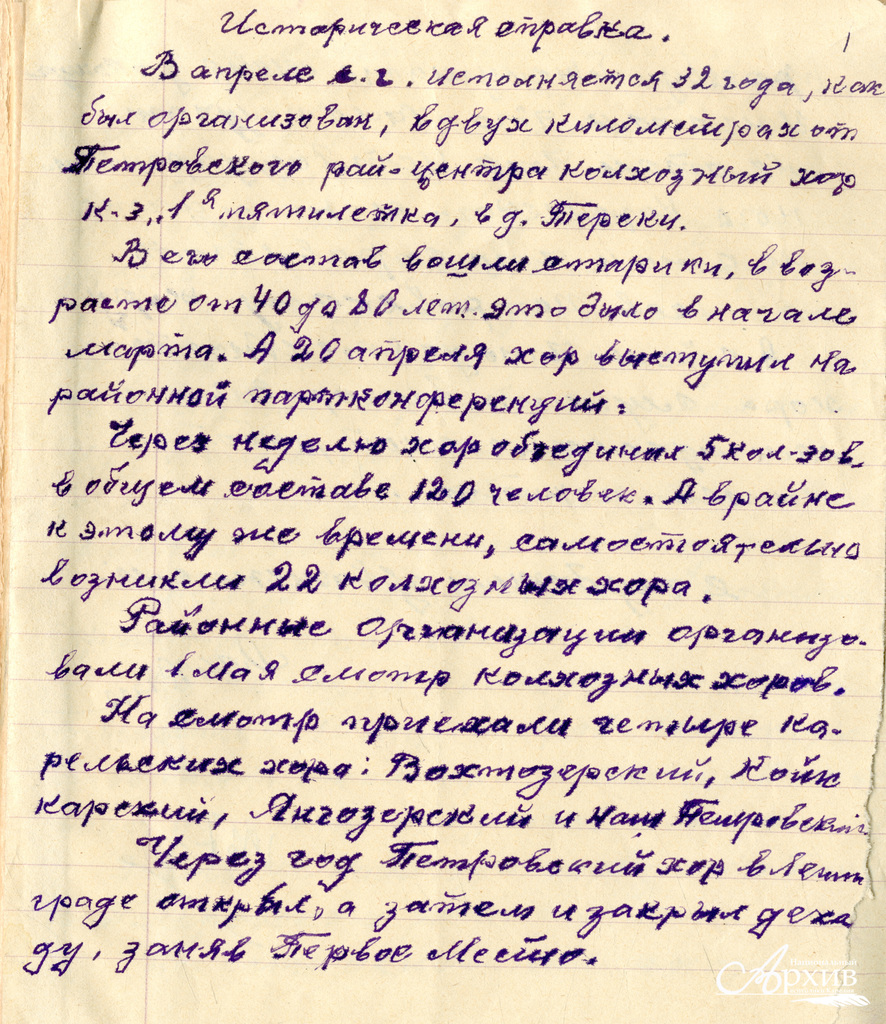 Историческая справка.
1
В апреле с.г. исполняется 32 года, как
был организован, в двух километрах от
Петровского рай-центра колхозный хор
к-з „1я пятилетка, в д. Тереки.
В его состав вошли старики, в воз-
расте от 40 до 80 лет. это было в начале
марта. А 20 апреля хор выступил на
районной партконференций.
Через неделю хор объединил 5 кол-зов,
в общем составе 120 человек. А в райне
к этому же времени, самостоятельно
возникли 22 колхозных хора.
Районные организации организо-
вали 1 мая смотр колхозных хоров.
На смотр приехали четыре ка-
рельских хора: Вохтозерский, Койк
карский, Янгозерский и наш Петровский.
Через год Петровский хор в Ленин
граде открыл, а затем и закрыл дека
ду, заняв Первое Место.
Национальный
Архив